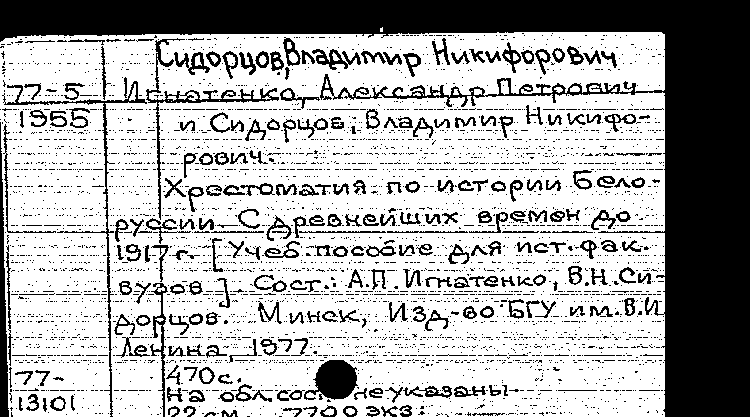 Сидорцов, Владимир Никифорович
77-5 Игнатенко, Александр Петрович
1955 и Сидорцов, Владимир Никифо-
рович.
Хрестоматия по истории Бело-
руссии. С древнейших времен до
1917 г. [Учеб. пособие для ист. фак.
вузов]. Сост.: А.П. Игнатенко, В.Н. Си-
дорцов. Минск, Изд-во БГУ им. В.И.
Ленина, 1977.
77- 470 с.
13101 На обл. сост. не указаны.
22 см. 7700 экз.